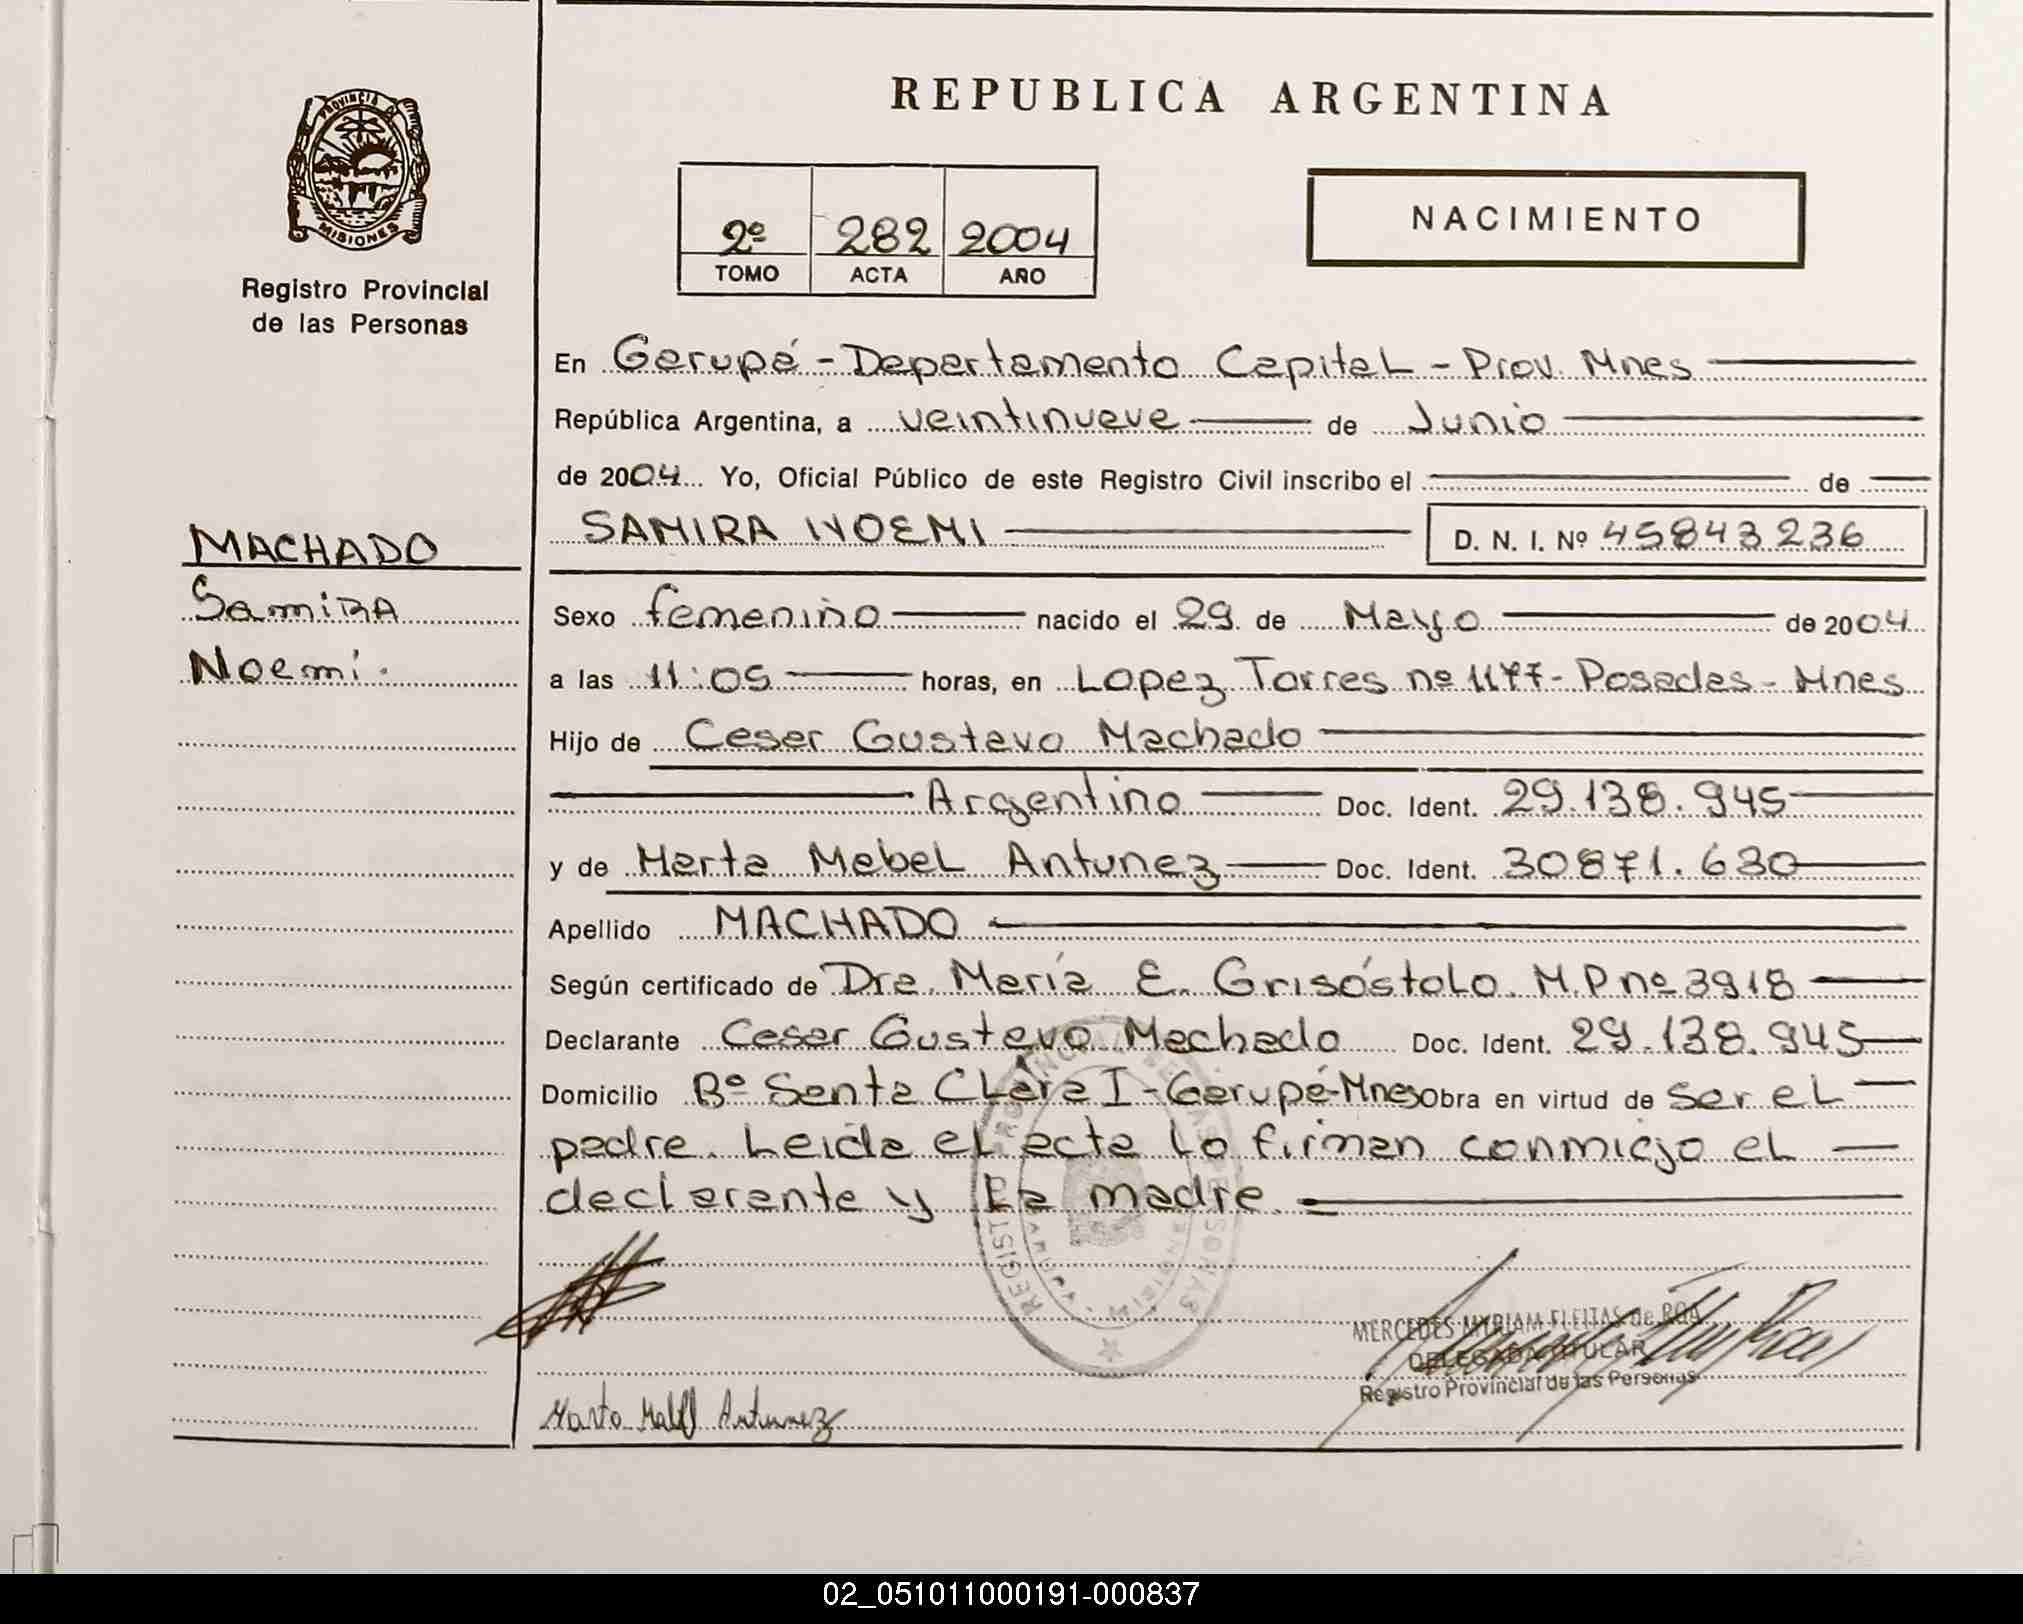 REPUBLICA ARGENTINA
PROVINCIA DE
MISIONES
Registro Provincial
de las Personas
2º 282 2004
TOMO ACTA AÑO
NACIMIENTO
En Garupá - Departamento Capital - Prov. Mnes
República Argentina, a veintinueve de Junio
de 2004 Yo, Oficial Público de este Registro Civil inscribo el de
SAMIRA NOEMI D. N. I. Nº 45843236
MACHADO
Samira
Noemi.
Sexo femenino nacido el 29 de Mayo de 2004
a las 11:05 horas, en Lopez Torres nº 1177 - Posadas - Mnes
Hijo de Cesar Gustavo Machado
Argentino Doc. Ident. 29.138.945
y de Marta Mabel Antunez Doc. Ident. 30871.630
Apellido MACHADO
Según certificado de Dra. María E. Grisóstolo. M.P nº 3918
Declarante Cesar Gustavo Machado Doc. Ident. 29.138.945
Domicilio Bº Santa Clara I - Garupá - Mnes Obra en virtud de ser el
padre. Leida el acta lo firman conmigo el
declarante y la madre.
MERCEDES MYRIAM FLEITAS de ROA
DELEGADA TITULAR
Registro Provincial de las Personas
Marta Mabel Antunez
02_051011000191-000837